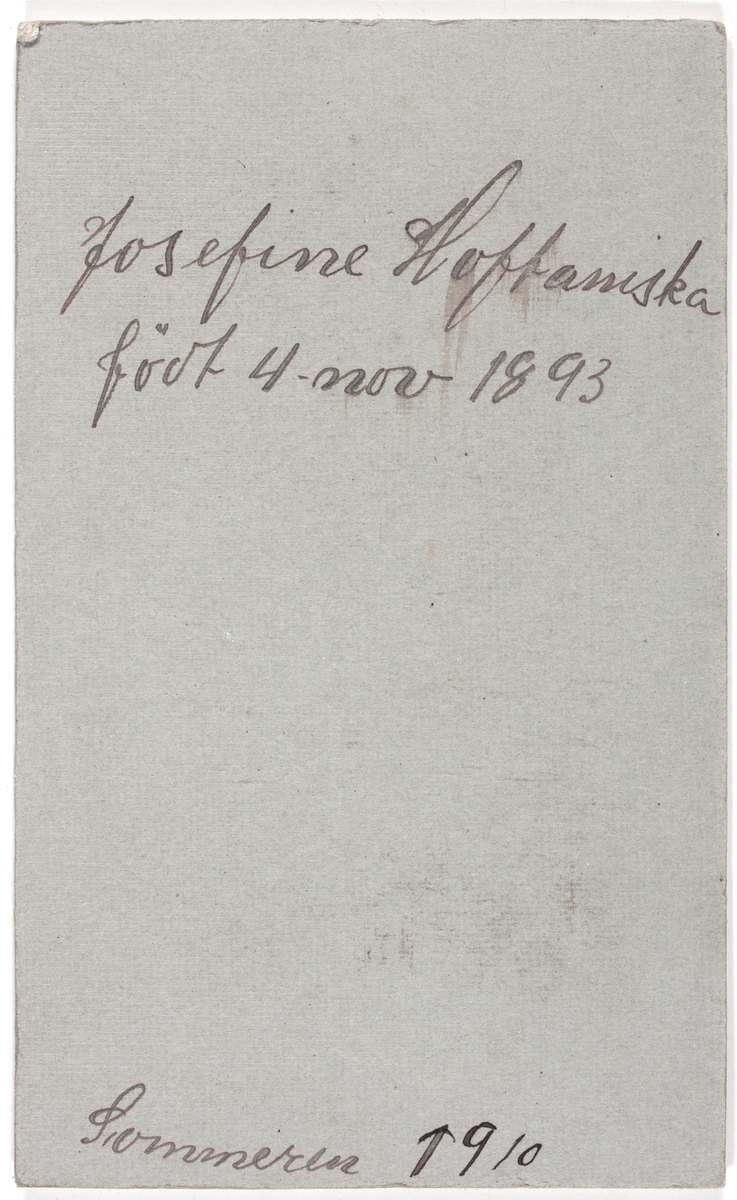 Josefine Hoftaniska
födt 4-nov 1893
Sommeren 1910